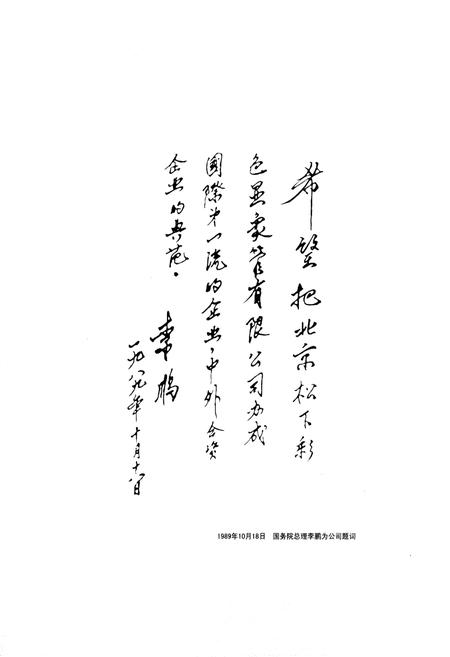 希望把北京松下彩
色显象管有限公司办成
国際第一流的企业，中外合资
企业的典范。
李鹏
一九八九年十月十八日
1989年10月18日 国务院总理李鹏为公司题词